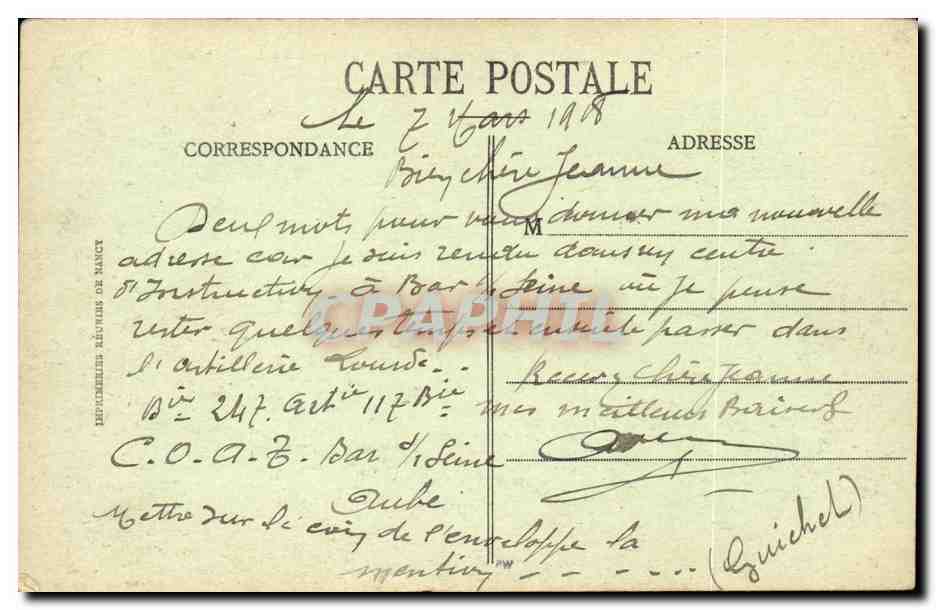 CARTE POSTALE
Le 7 Mars 1918
CORRESPONDANCE
ADRESSE
Bien chère Jeanne
Deux mots pour vous donner ma nouvelle
M
adresse car je suis rendu dans un centre
d'Instruction à Bar s/ Seine où je pense
rester quelques temps et ensuite passer dans
l'artillerie Lourde..
Recevez chère Jeanne
247. Artie 117 Bie
mes meilleurs Baisers
C.O.A.T. Bar s/ Seine
Aube
Mettre sur le coin de l'enveloppe la
mention - - - ...
(Guichet)
IMPRIMERIES RÉUNIES DE NANCY
CPAPHIL